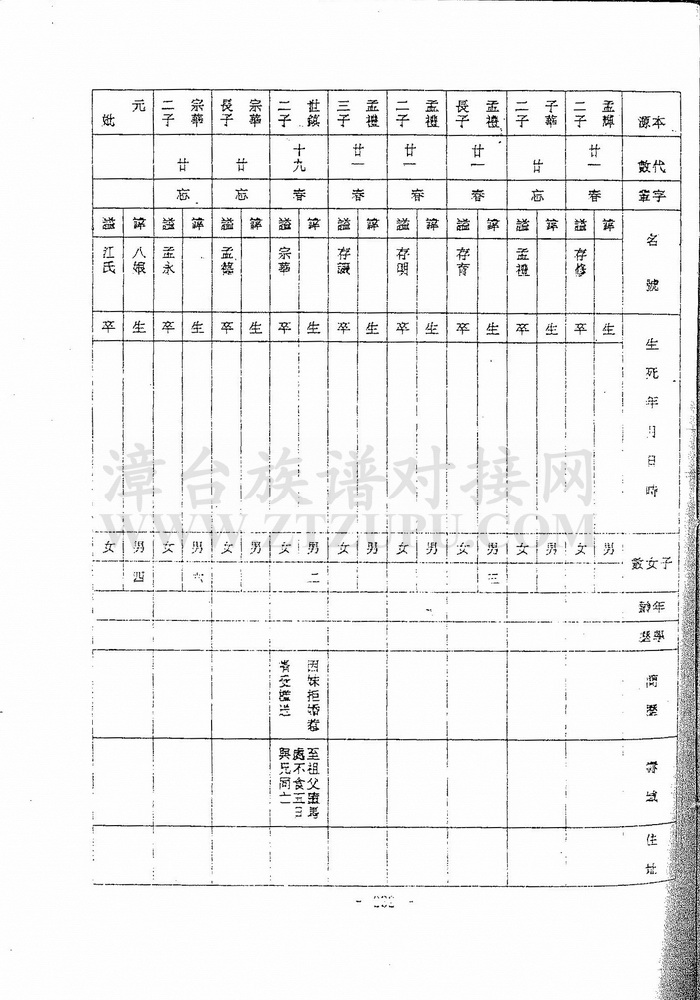 本源
代數
字輩
名號
生死年月日時
子女數
年齡
學歷
簡歷
住址
孟輝二子
廿一
春
諱
諡 存修
生
卒
男
女
子華二子
廿
忘
諱
諡 孟禮
生
卒
男
女
孟禮長子
廿一
春
諱
諡 存育
生
卒
男 三
女
孟禮二子
廿一
春
諱
諡 存明
生
卒
男
女
孟禮三子
廿一
春
諱
諡 存讓
生
卒
男
女
世鎮二子
十九
春
諱
諡 宗華
生
卒
男 二
女
因妹拒婚
至祖父
處不食五日
與兄同亡
宗華長子
廿
忘
諱
諡
生
卒
男
女
宗華二子
廿
忘
諱
諡 孟永
生
卒
男 六
女
元妣
諱 八娘
諡 江氏
生
卒
男 四
女
漳台族谱对接网
WWW.ZTZUPU.COM